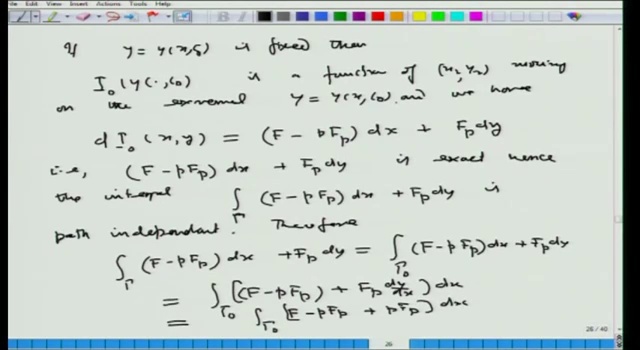 File Edit View Insert Actions Tools Help
If y = y(x, c₀) is fixed then
I₀(y(·, c₀)) is a function of (x₂, y₂) moving
on the extremal y = y(x, c₀) and we have
dI₀(x, y) = (F - pFp) dx + Fp dy
i.e, (F - pFp) dx + Fp dy is exact hence
the integral ∫_Γ (F - pFp) dx + Fp dy is
path independent. Therefore
∫_Γ (F - pFp) dx + Fp dy = ∫_Γ₀ (F - pFp) dx + Fp dy
= ∫_Γ₀ [(F - pFp) + Fp dy/dx] dx
= ∫_Γ₀ [F - pFp + pFp] dx
26 / 40
26